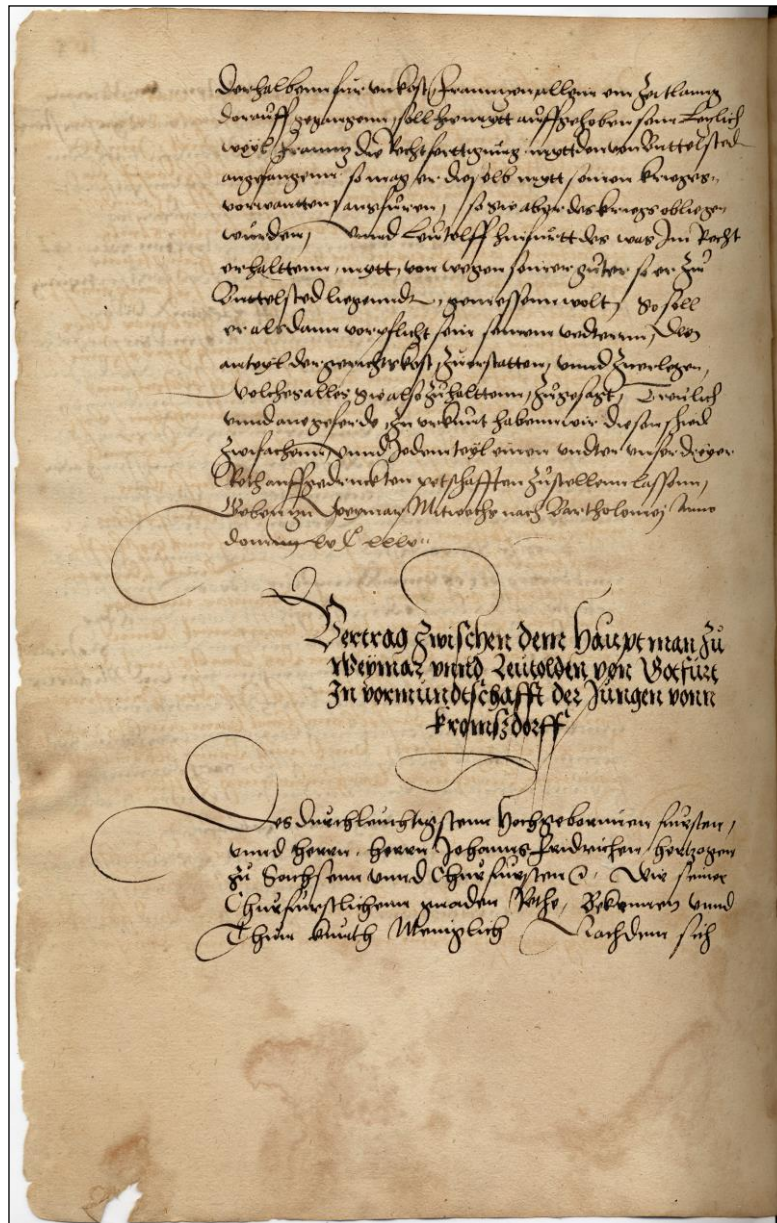 derhalbenn fur unkost, Frantzen allein ein zeitlanng
darauff gegangenn, soll hirmytt auffgehoben sein Letzlich
weyl Frantz die Rechtfertigung mytt den von Buttelsted
angefangenn so mag er dieselb mytt seinen krieges
vorwantten, ausfuren, so sie aber des kriegs obliegen
wurden, unnd Leutolff hinfurtt des was Im Recht
erhalttenn, mytt, von wegen seiner guter so er zu
Buttelsted liegendt, geniessenn wolt, So soll
er als dann vorpflicht sein seinem vedternn, den
anteyl der gerichtskost, zuerstatten, unnd zuerlegen,
Welches alles sie also zuhalttenn, zugesagt, Treulich
unnd ane geferde, zu urkunt habenn wir diesen schied
zwifachenn unnd Jedem teyl einen undter unser dreyer
Reth auffgedruckten petschafften zustellenn lassenn,
Geben zu Weymar Mitwochs nach Bartholomej Anno
domini
Vertrag zwischen dem Hauptman zu
Weymar unnd Leutolden von Botfurt
In vormundtschafft der Jungen vonn
Kromszdorff
Des durchleuchtigstenn Hochgebornnen fursten,
unnd herrn, herrn Johanns Fridrichen hertzogen
zu Sachsenn unnd Churfursten &c. Wir seiner
Churfurstlichenn gnaden Rethe, Bekennen unnd
Thun kunth Meniglich Nachdem sich